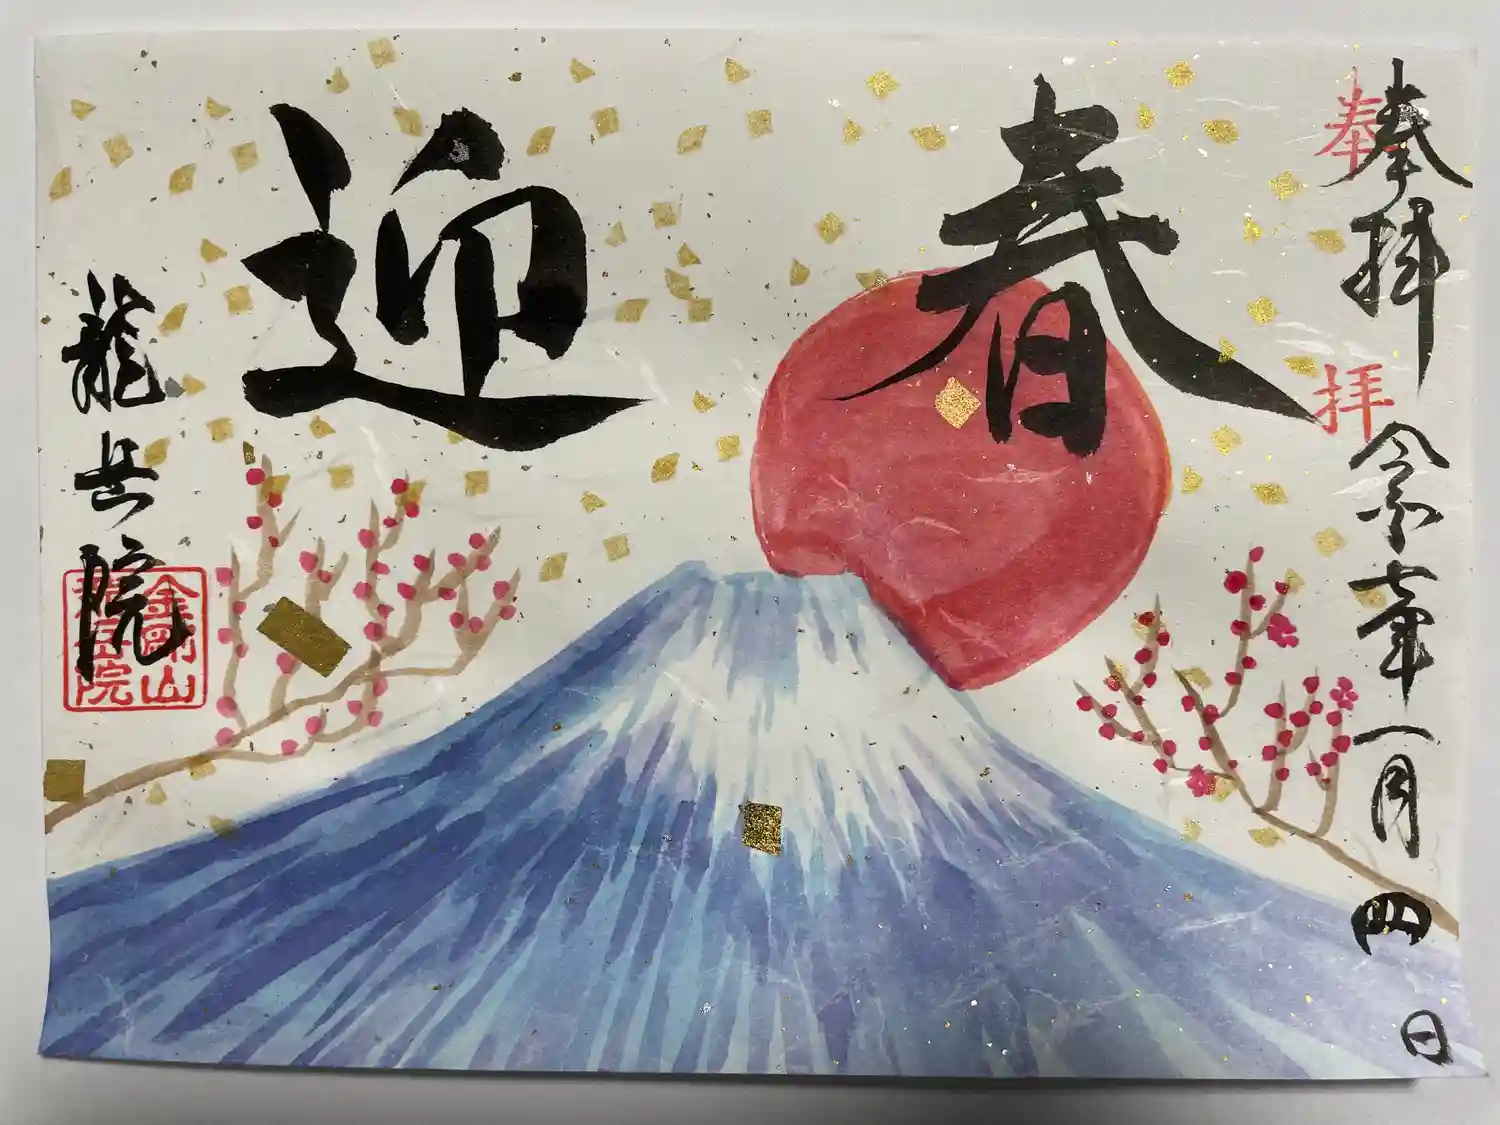 奉拝
令和七年一月四日
奉拝
迎春
龍 院
金剛山
院